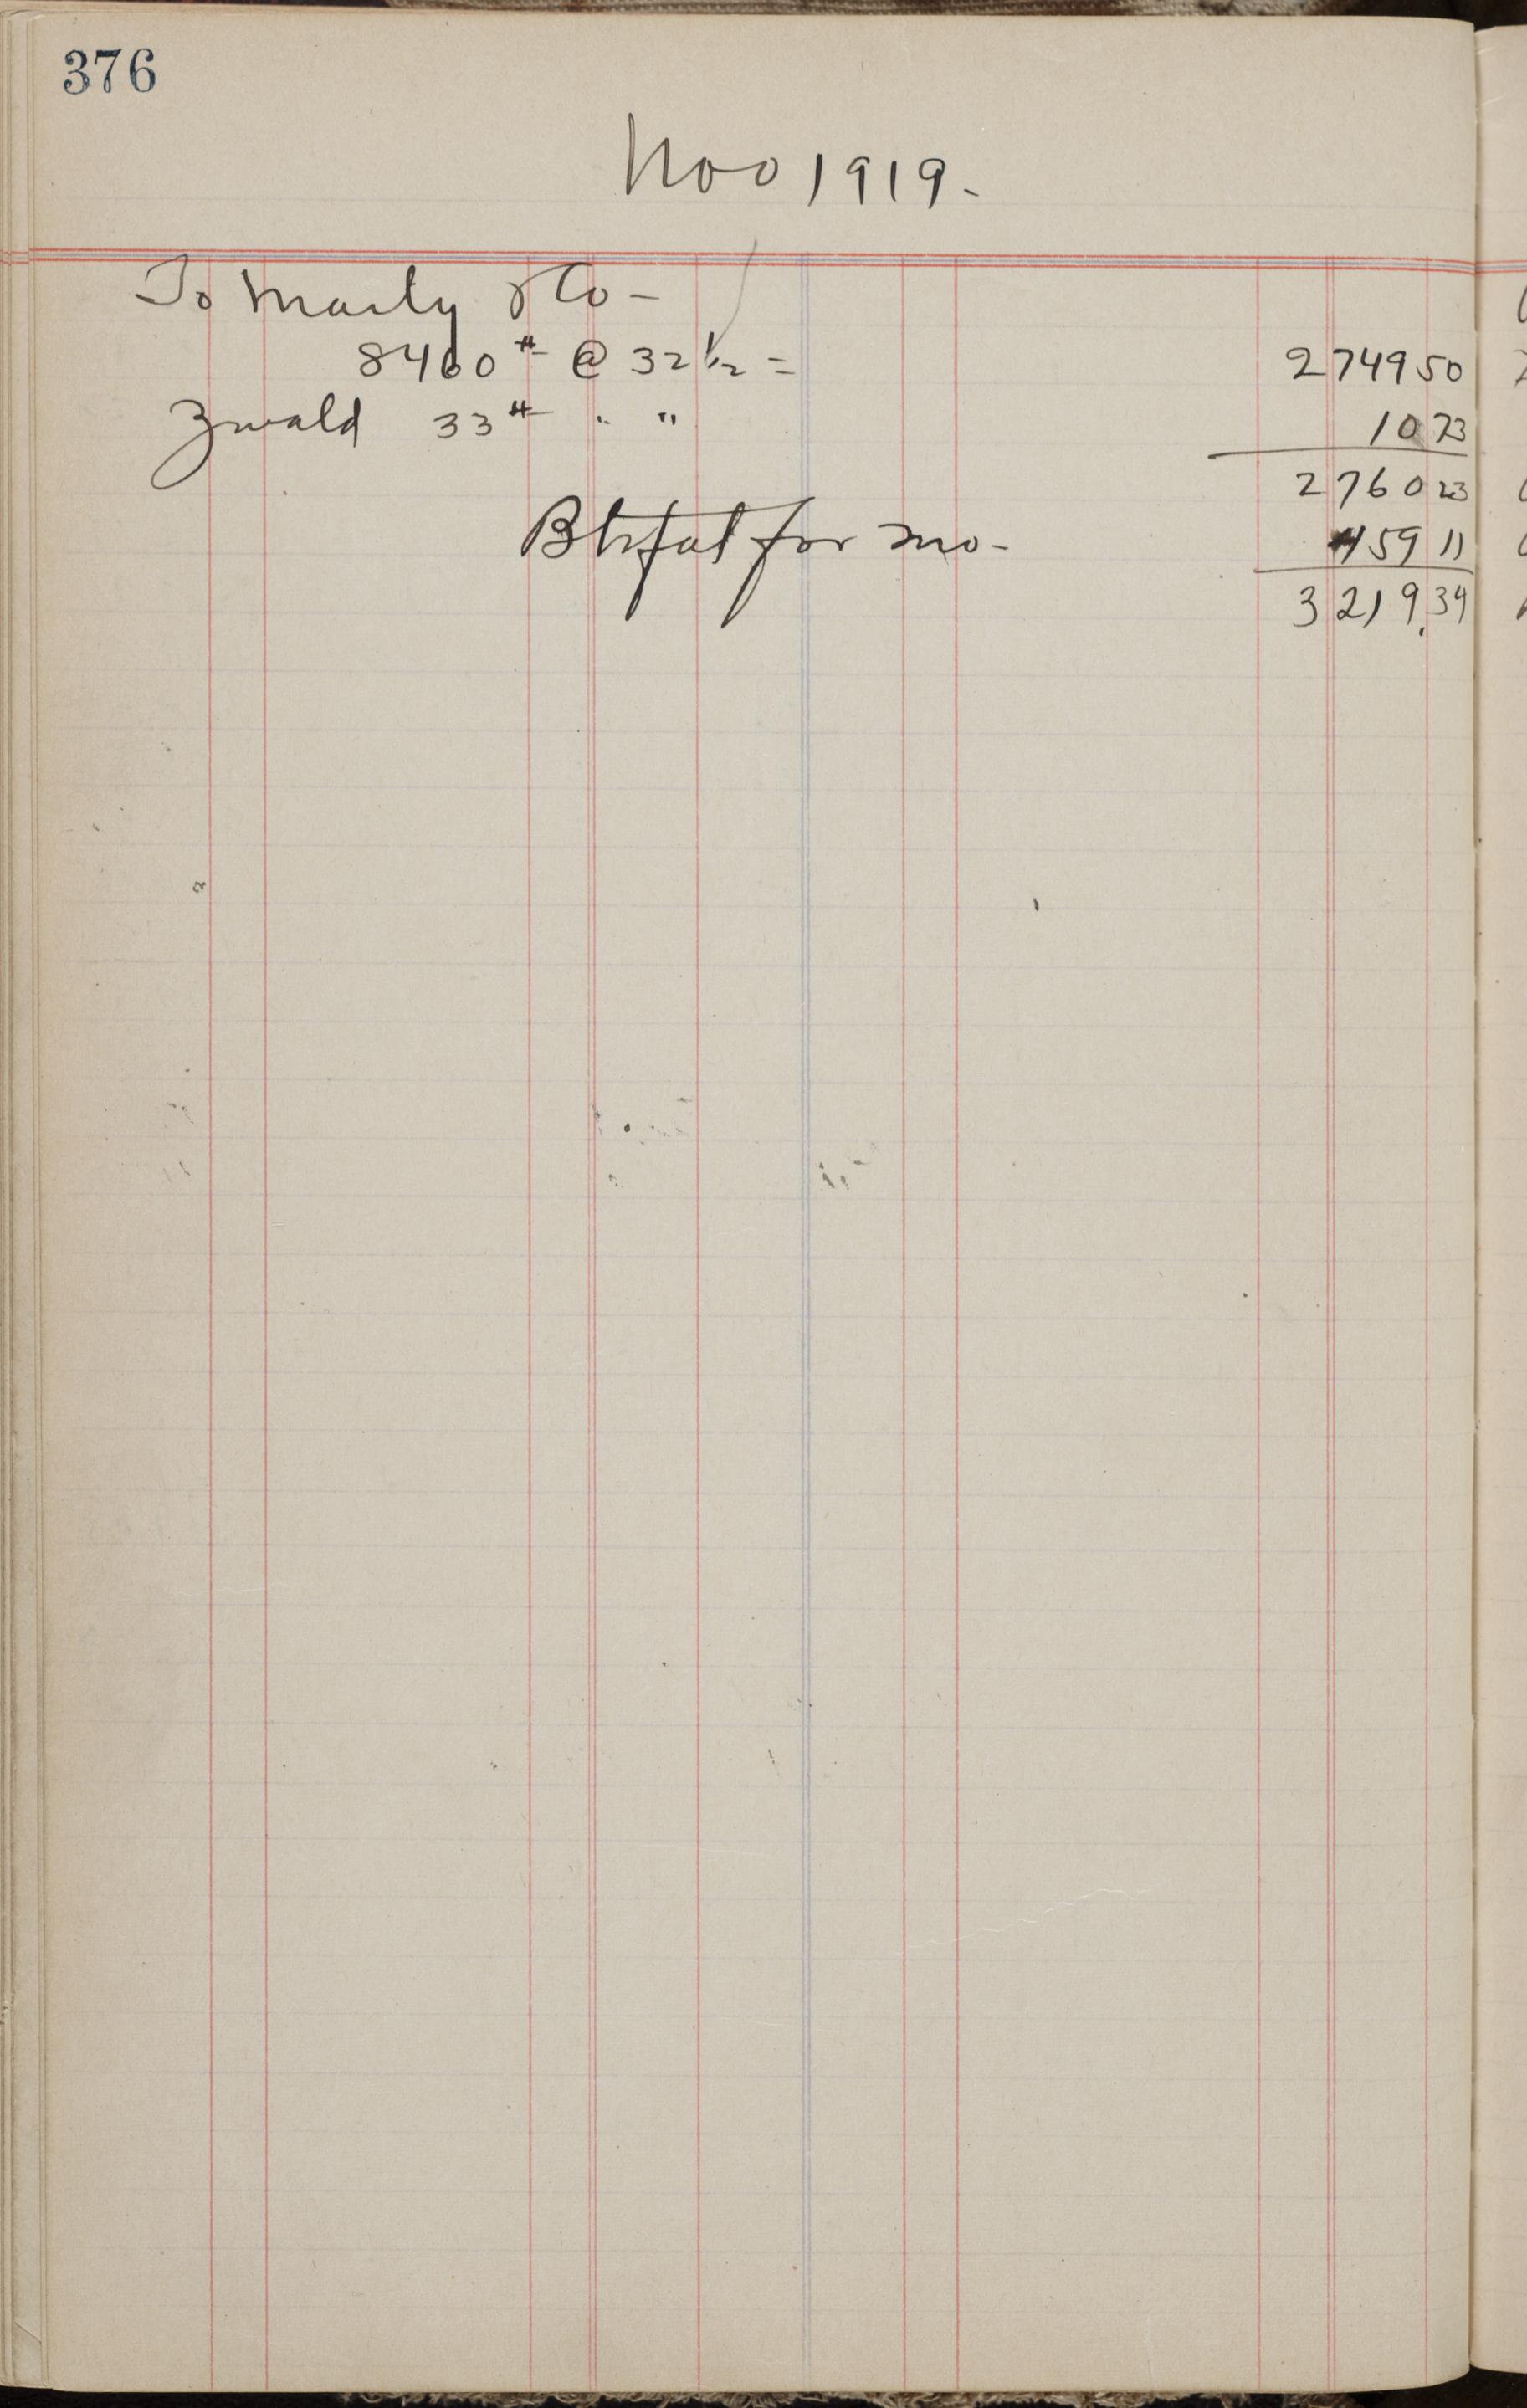 376
Nov 1919-
To Marty & Co -
8460# @ 32 1/2 = 2749 50
Zwald 33# " " 10 73
2760 23
Btrfat for mo- 459 11
3219.34